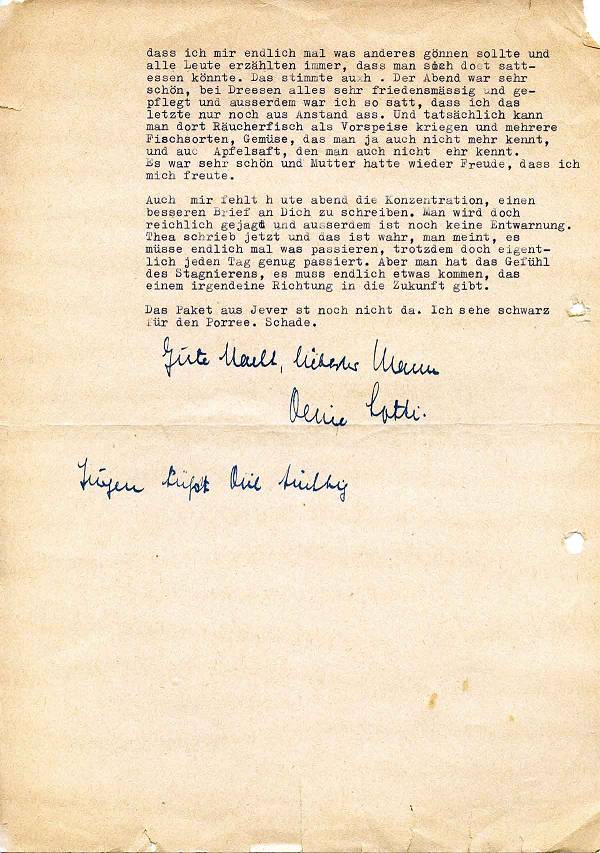 dass ich mir endlich mal was anderes gönnen sollte und
alle Leute erzählten immer, dass man sich dort satt-
essen könnte. Das stimmte auxh . Der Abend war sehr
schön, bei Dreesen alles sehr friedensmässig und ge-
pflegt und ausserdem war ich so satt, dass ich das
letzte nur noch aus Anstand ass. Und tatsächlich kann
man dort Räucherfisch als Vorspeise kriegen und mehrere
Fischsorten, Gemüse, das man ja auch nicht mehr kennt,
und auc Apfelsaft, den man auch nicht ehr kennt.
Es war sehr schön und Mutter hatte wieder Freude, dass ich
mich freute.
Auch mir fehlt h ute abend die Konzentration, einen
besseren Brief an Dich zu schreiben. Man wird doch
reichlich gejagt und ausserdem ist noch keine Entwarnung.
Thea schrieb jetzt und das ist wahr, man meint, es
müsse endlich mal was passieren, trotzdem doch eigent-
lich jeden Tag genug passiert. Aber man hat das Gefühl
des Stagnierens, es muss endlich etwas kommen, das
einem irgendeine Richtung in die Zukunft gibt.
Das Paket aus Jever st noch nicht da. Ich sehe schwarz
für den Porree. Schade.
Gute Nacht, liebster Mann
Deine Lotti.
Jürgen küßt Dich tüchtig